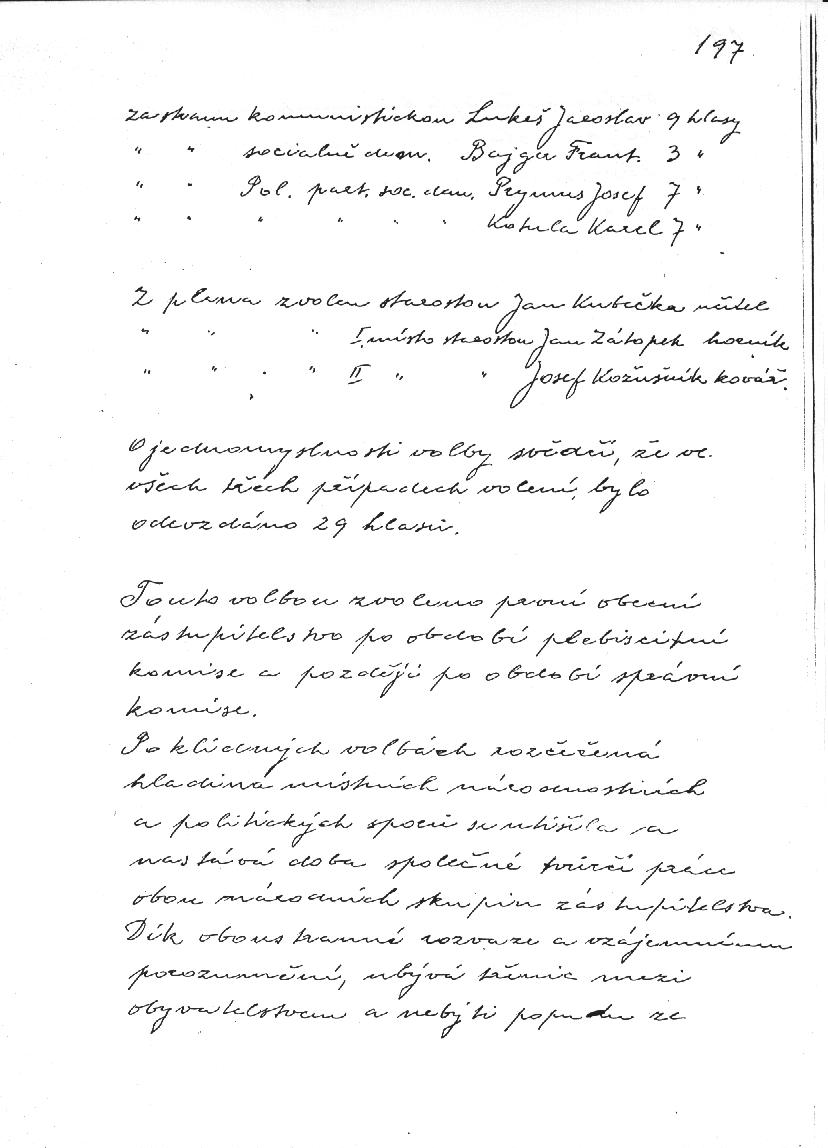 197
za stranu komunistickou Lukeš Jaroslav 9 hlasy
" " socialně dem. Bajger Frant. 3 "
" " Pol. part. soc. dem. Prymus Josef 7 "
" " " " " " Kotula Karel 7 "
Z plena zvolen starostou Jan Kubečka učitel
" " " I. místo starostou Jan Zátopek horník
" " " " II " " Josef Kožušník kovář.
O jednomyslnosti volby svědčí, že ve
všech třech případech volení, bylo
odevzdáno 29 hlasů.
Touto volbou zvoleno první obecní
zástupitelstvo po období plebiscitní
komise a později po období správní
komise.
Po klidných volbách rozčeřená
hladina místních národnostních
a politických sporů se utišila a
nastává doba společné tvůrčí práce
obou národních skupin zástupitelstva.
Dík oboustranné rozvaze a vzájemnému
porozumnění, ubývá třenic mezi
obyvatelstvem a nebýti popudu ze